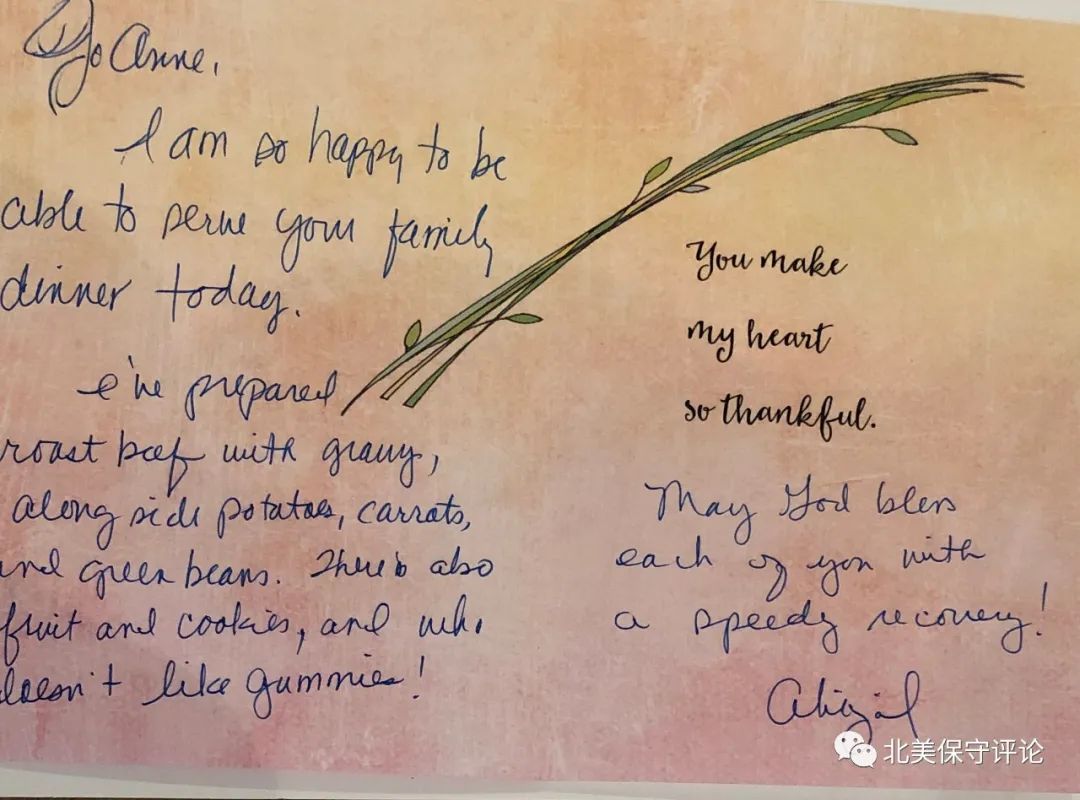 Jo Anne,
I am so happy to be
able to serve your family
dinner today.
I've prepared
roast beef with gravy,
along side potatoes, carrots,
and green beans. There's also
fruit and cookies, and who
doesn't like gummies!
You make
my heart
so thankful.
May God bless
each of you with
a speedy recovery!
Abigail
北美保守评论